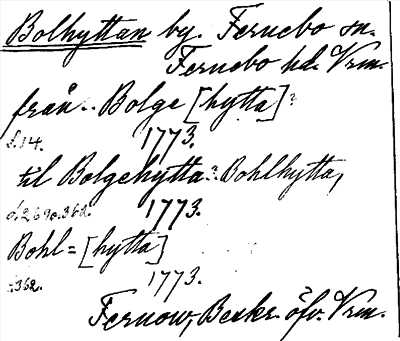 Bolhyttan by. Fernebo sn.
Fernebo hd. Vrm.
från.. Bolge [hytta]?
s.14. 1773.
til Bolgehytta? Bohlhytta,
s.269 o. 362. 1773.
Bohl= [hytta]
s.362. 1773.
Fernow, Beskr. öfv. Vrm.